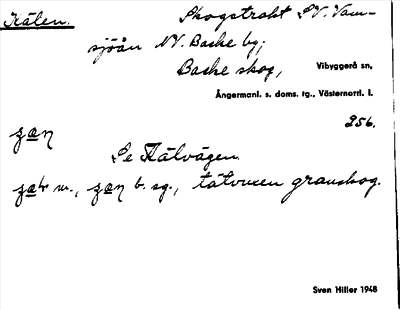 Kälen.
Skogstrakt SV. Vam-
sjöån NV. Backe by;
Backe skog, Vibyggerå sn,
Ångermanl. s. doms. tg., Västernorrl. l.
256.
Se Kälvägen.
m., b. sg., tätvuxen granskog.
Sven Hiller 1948